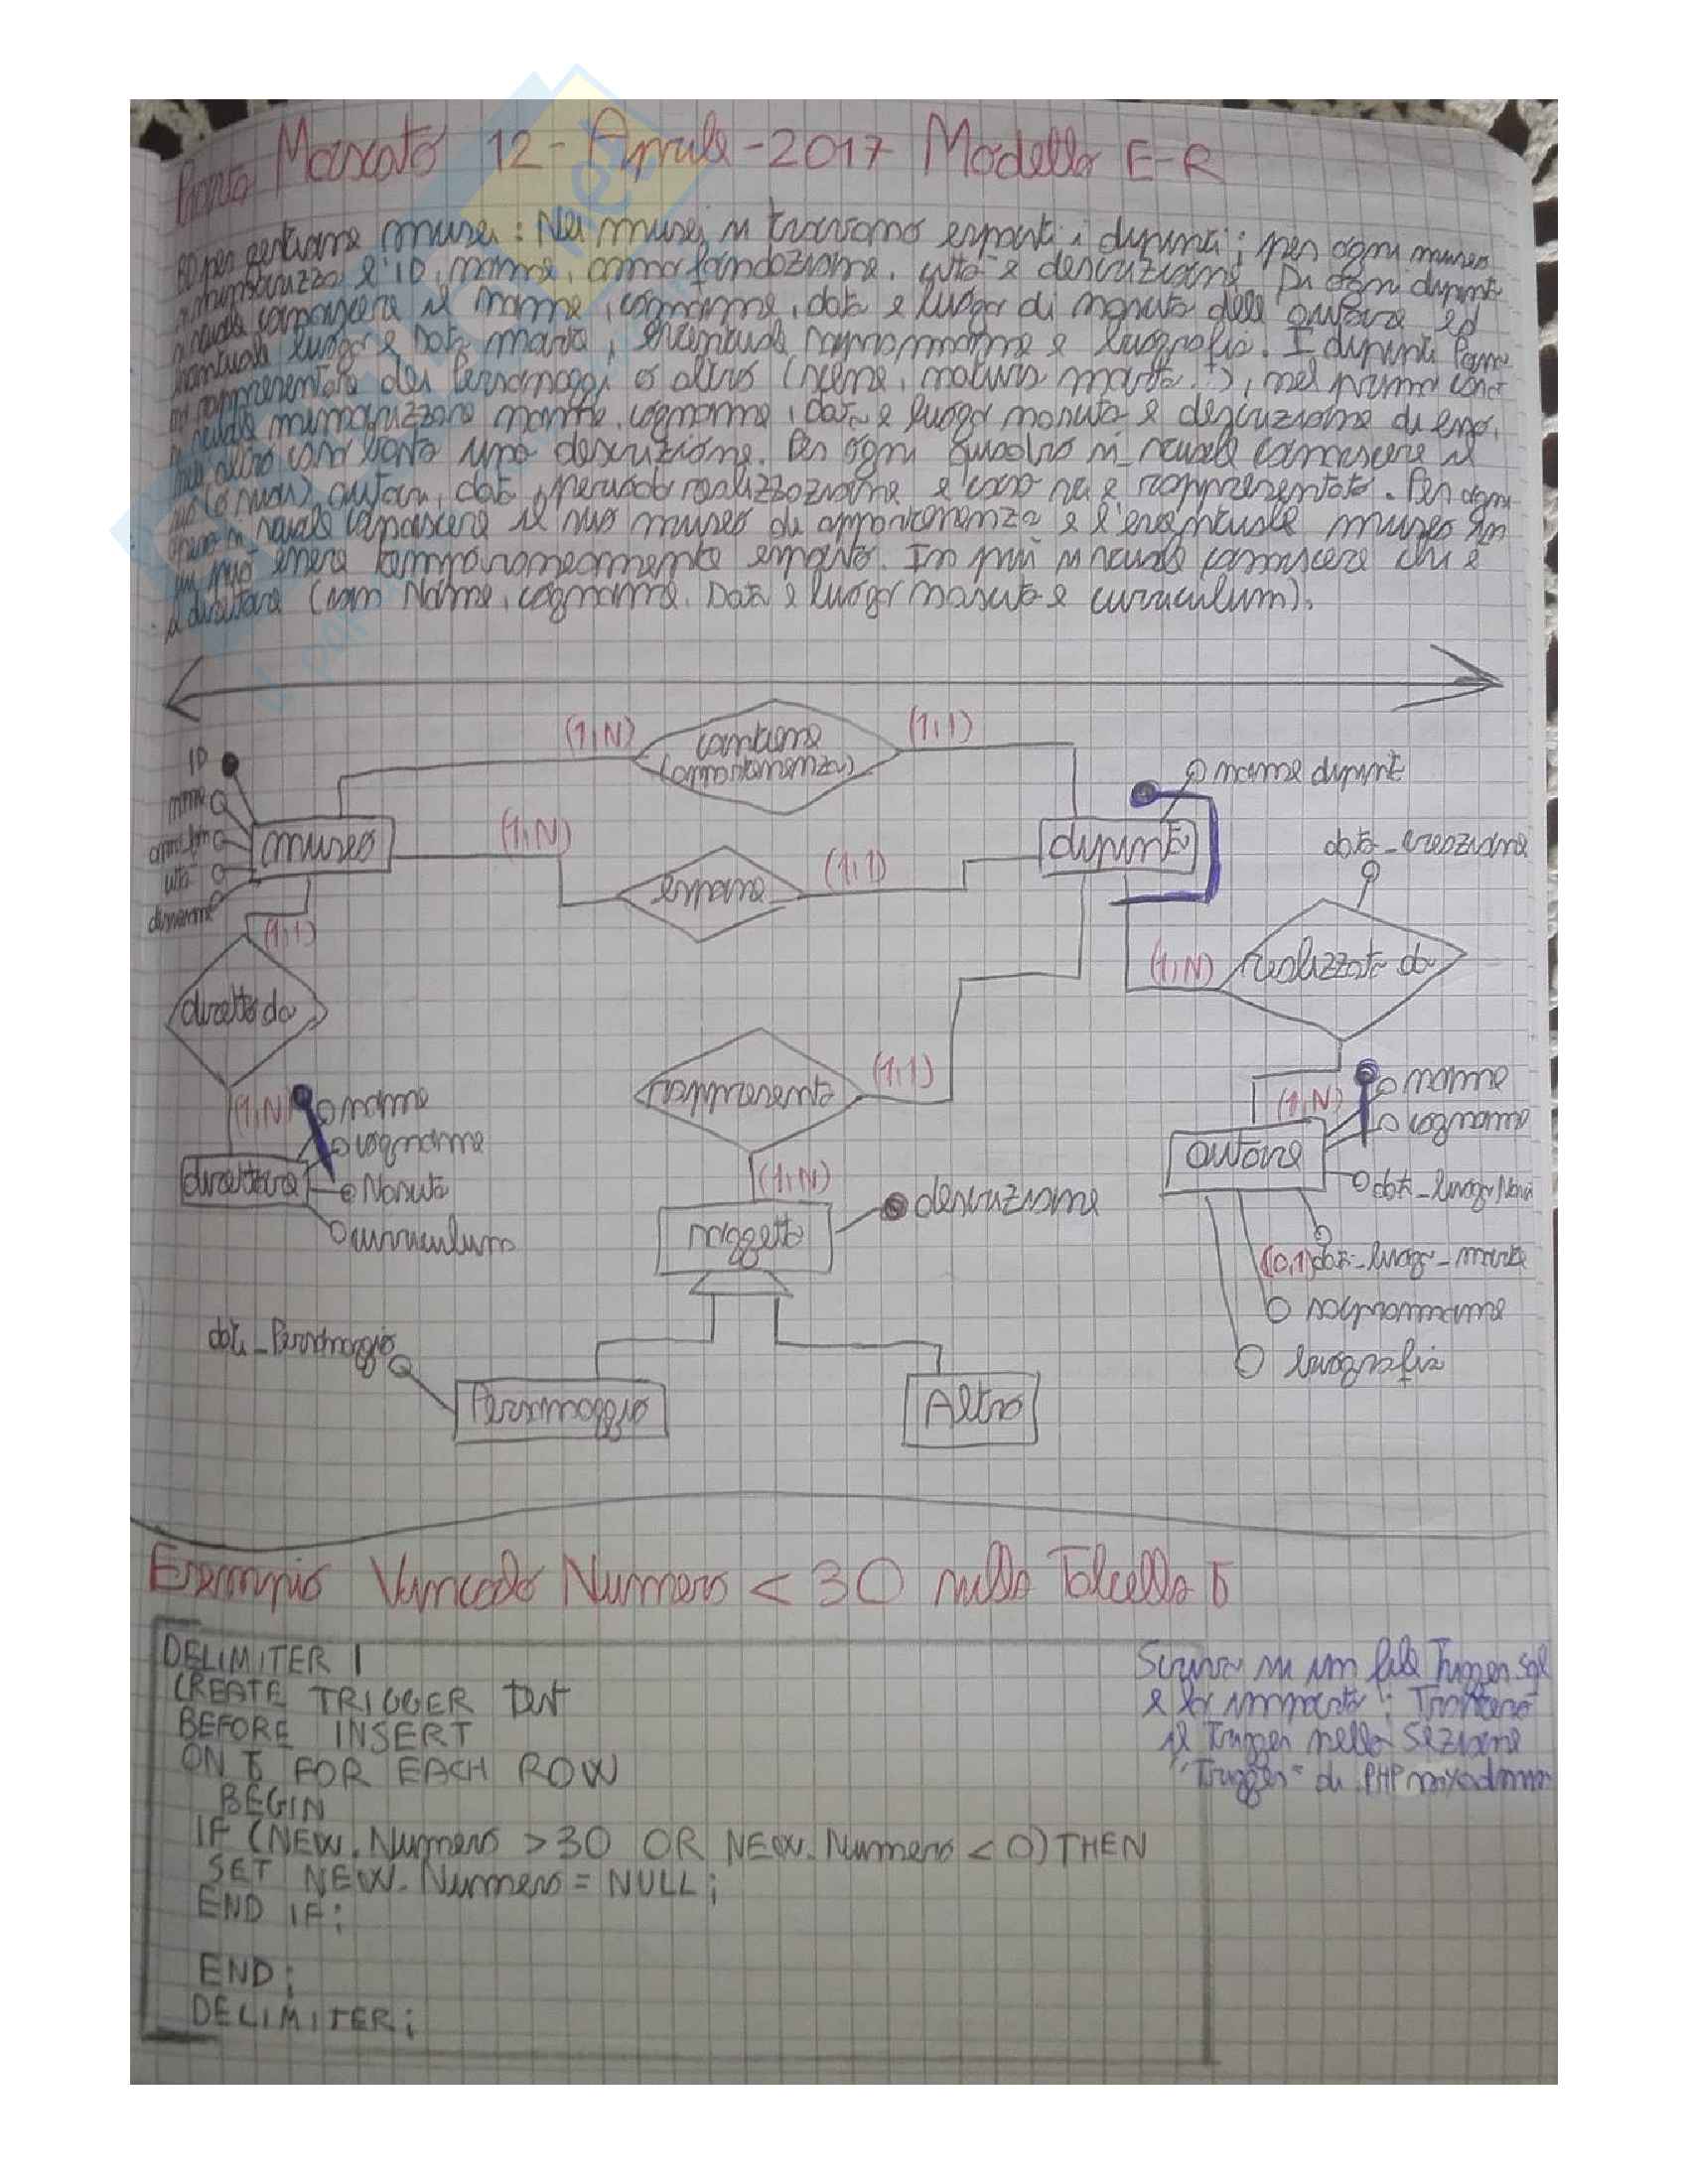 Moscato 12-Aprile-2017 Modello E-R
BD per gestione musei: Nei musei si trovano esposti i dipinti; per ogni museo
si memorizza l'ID, nome, anno fondazione, città e descrizione. Di ogni dipinto
si vuole conoscere il nome, cognome, data e luogo di nascita dell'autore ed
luogo e data morte, eventuale soprannome e biografia. I dipinti
rappresentare dei Personaggi o altro (scene, natura morta..), nel primo caso
si vuole memorizzare nome, cognome, data e luogo nascita e descrizione di esso,
altro con basta una descrizione. Per ogni quadro si vuole conoscere il
suo (o suoi) autori, data, periodo realizzazione e cosa vi è rappresentato. Per ogni
si vuole conoscere il suo museo di appartenenza e l'eventuale museo in
cui può essere temporaneamente esposto. In più si vuole conoscere chi è
il direttore (con Nome, cognome, Data e luogo nascita e curriculum).
(1,N) contiene (1,1)
(appartenenza)
ID
nome
città
museo
(1,N) espone (1,1)
dipinto
nome dipinto
data_creazione
(1,1)
diretto da
(1,N) realizzato da
(1,N)
nome
cognome
Nascita
curriculum
direttore
rappresenta (1,1)
(1,N)
soggetto
descrizione
(1,N)
nome
cognome
autore
(0,1) data_luogo_morte
soprannome
biografia
dati_Personaggio
Personaggio
Altro
Esempio Vincolo Numero < 30 nella Tabella T
DELIMITER |
CREATE TRIGGER Test
BEFORE INSERT
ON T FOR EACH ROW
BEGIN
IF (NEW.Numero >30 OR NEW.Numero <0) THEN
SET NEW.Numero = NULL;
END IF;
END;
DELIMITER;
Scrivo su un file Trigger.sql
e lo importo; Troverò
il Trigger nella Sezione
"Trigger" di